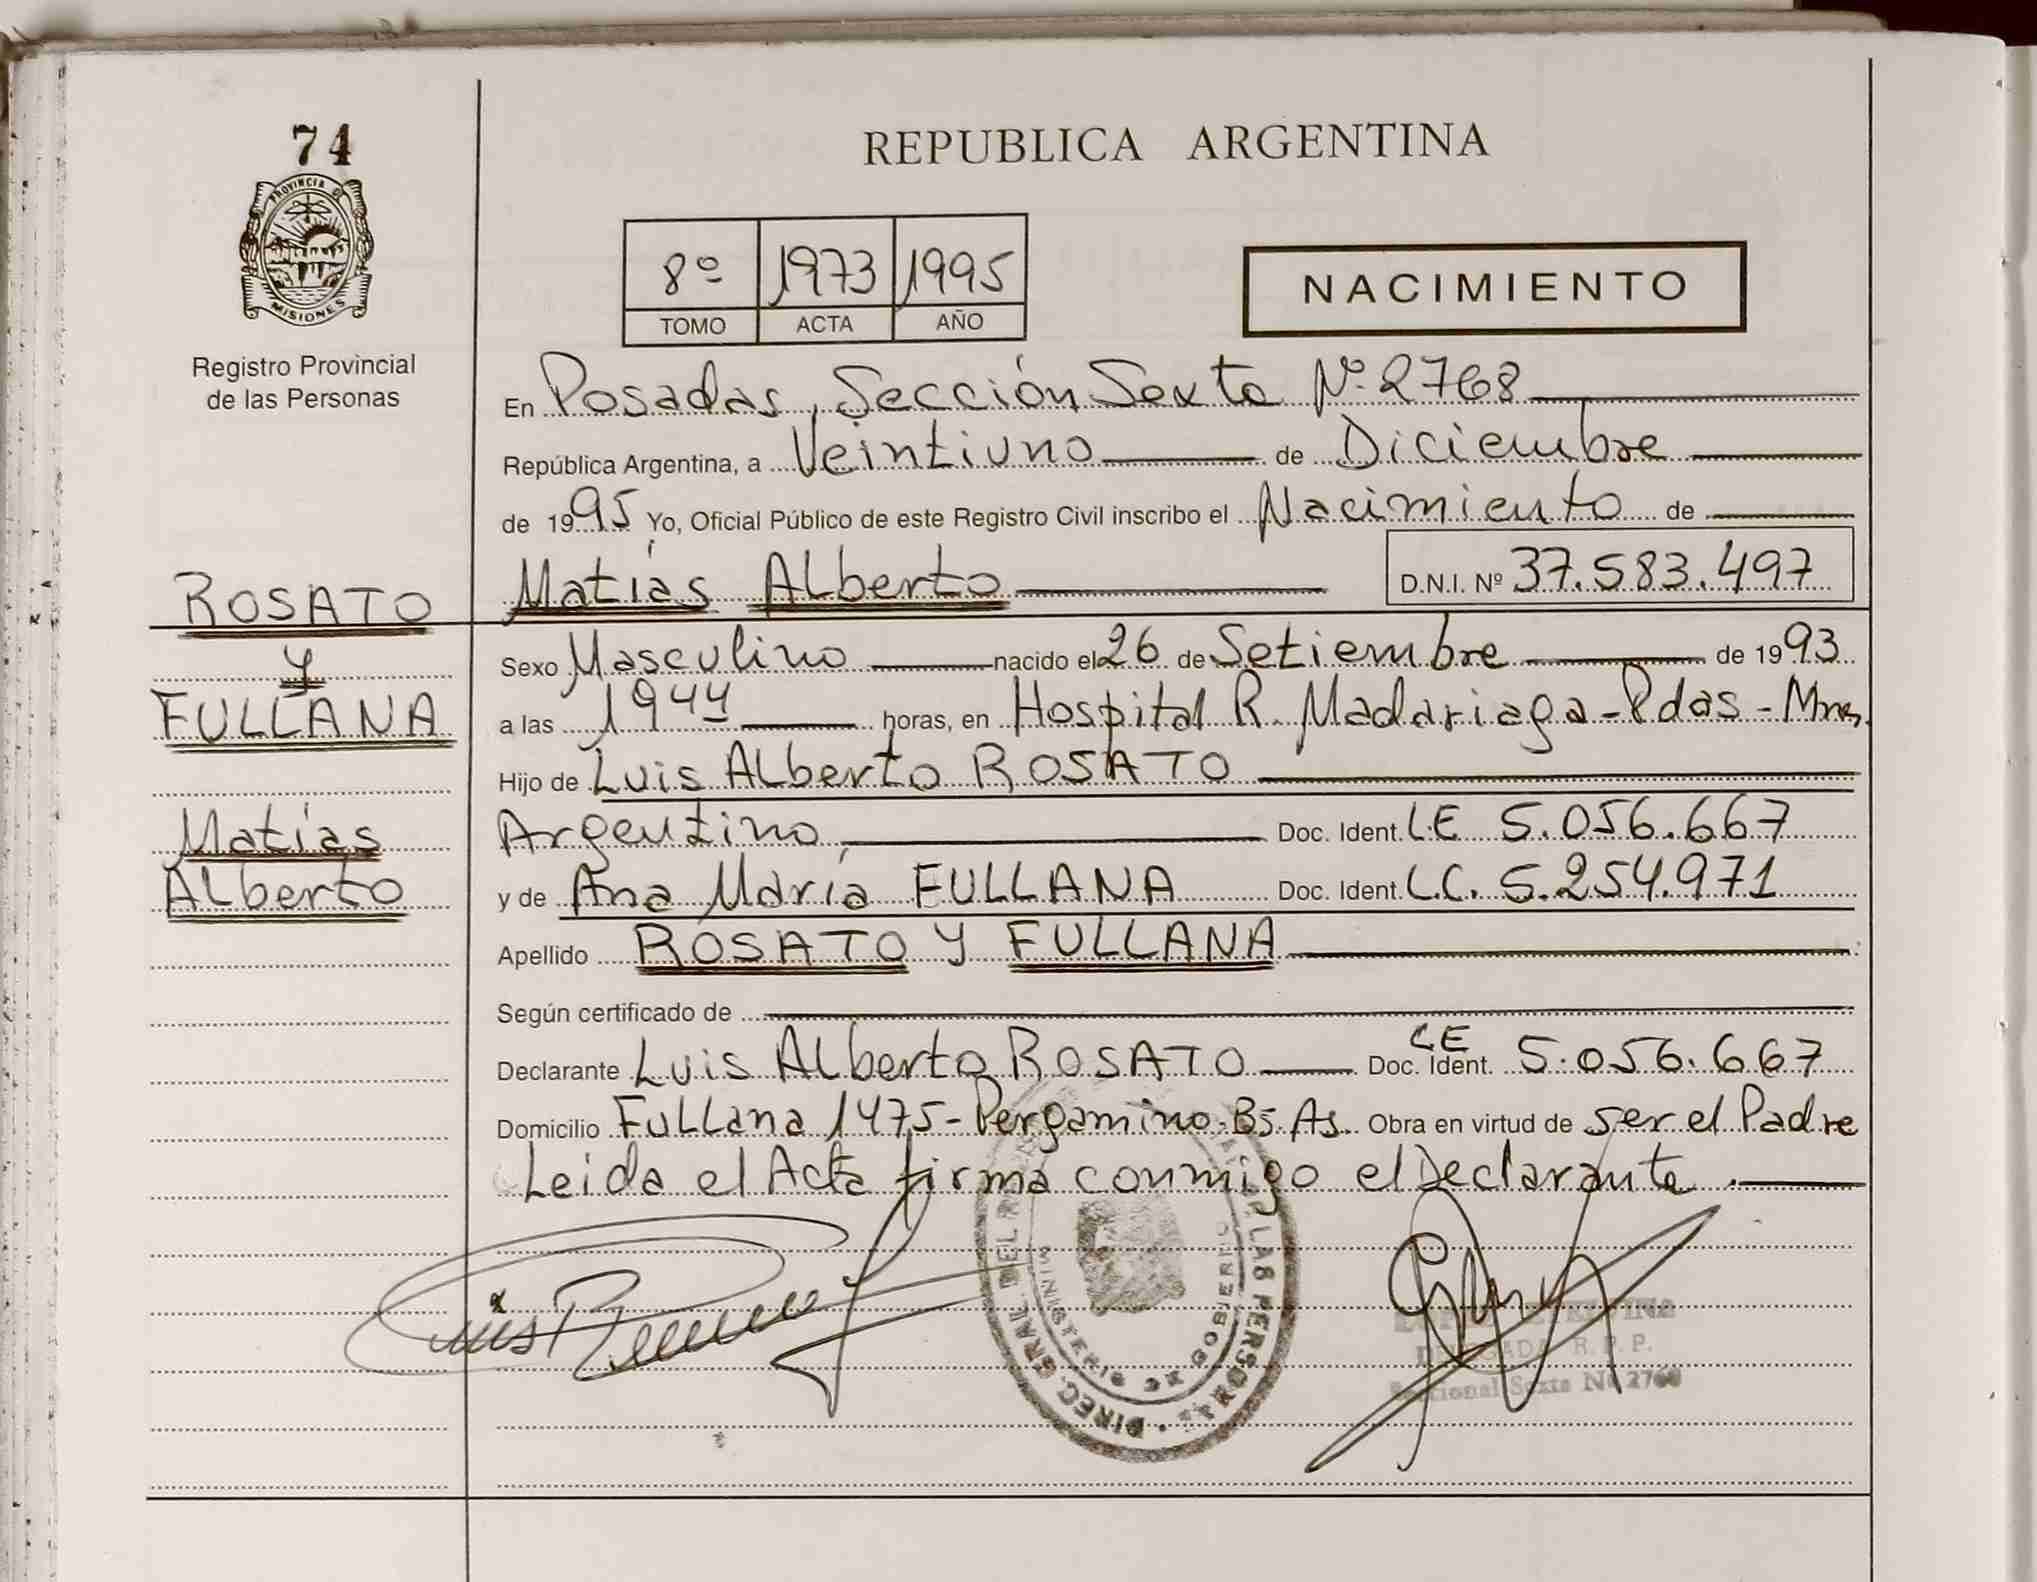 74
PROVINCIA DE
MISIONES
Registro Provincial
de las Personas
ROSATO
y
FULLANA
Matías
Alberto
REPUBLICA ARGENTINA
8º 1973 1995
TOMO ACTA AÑO
NACIMIENTO
En Posadas, Sección Sexta Nº 2768
República Argentina, a Veintiuno de Diciembre
de 1995 Yo, Oficial Público de este Registro Civil inscribo el Nacimiento de
Matías Alberto D.N.I. Nº 37.583.497
Sexo Masculino nacido el 26 de Setiembre de 1993
a las 19 44 horas, en Hospital R. Madariaga - Pdas - Mnes.
Hijo de Luis Alberto ROSATO
Argentino Doc. Ident. L.E 5.056.667
y de Ana María FULLANA Doc. Ident. L.C. 5.254.971
Apellido ROSATO y FULLANA
Según certificado de
Declarante Luis Alberto ROSATO Doc. Ident. LE 5.056.667
Domicilio Fullana 1475 - Pergamino - Bs. As. Obra en virtud de ser el Padre
Leida el Acta firma conmigo el Declarante.
Luis
DIREC. GRAL. DEL
LAS PERSONAS
MINISTERIO DE GOBIERNO
R. P. P.
Seccional Sexta Nº 2768